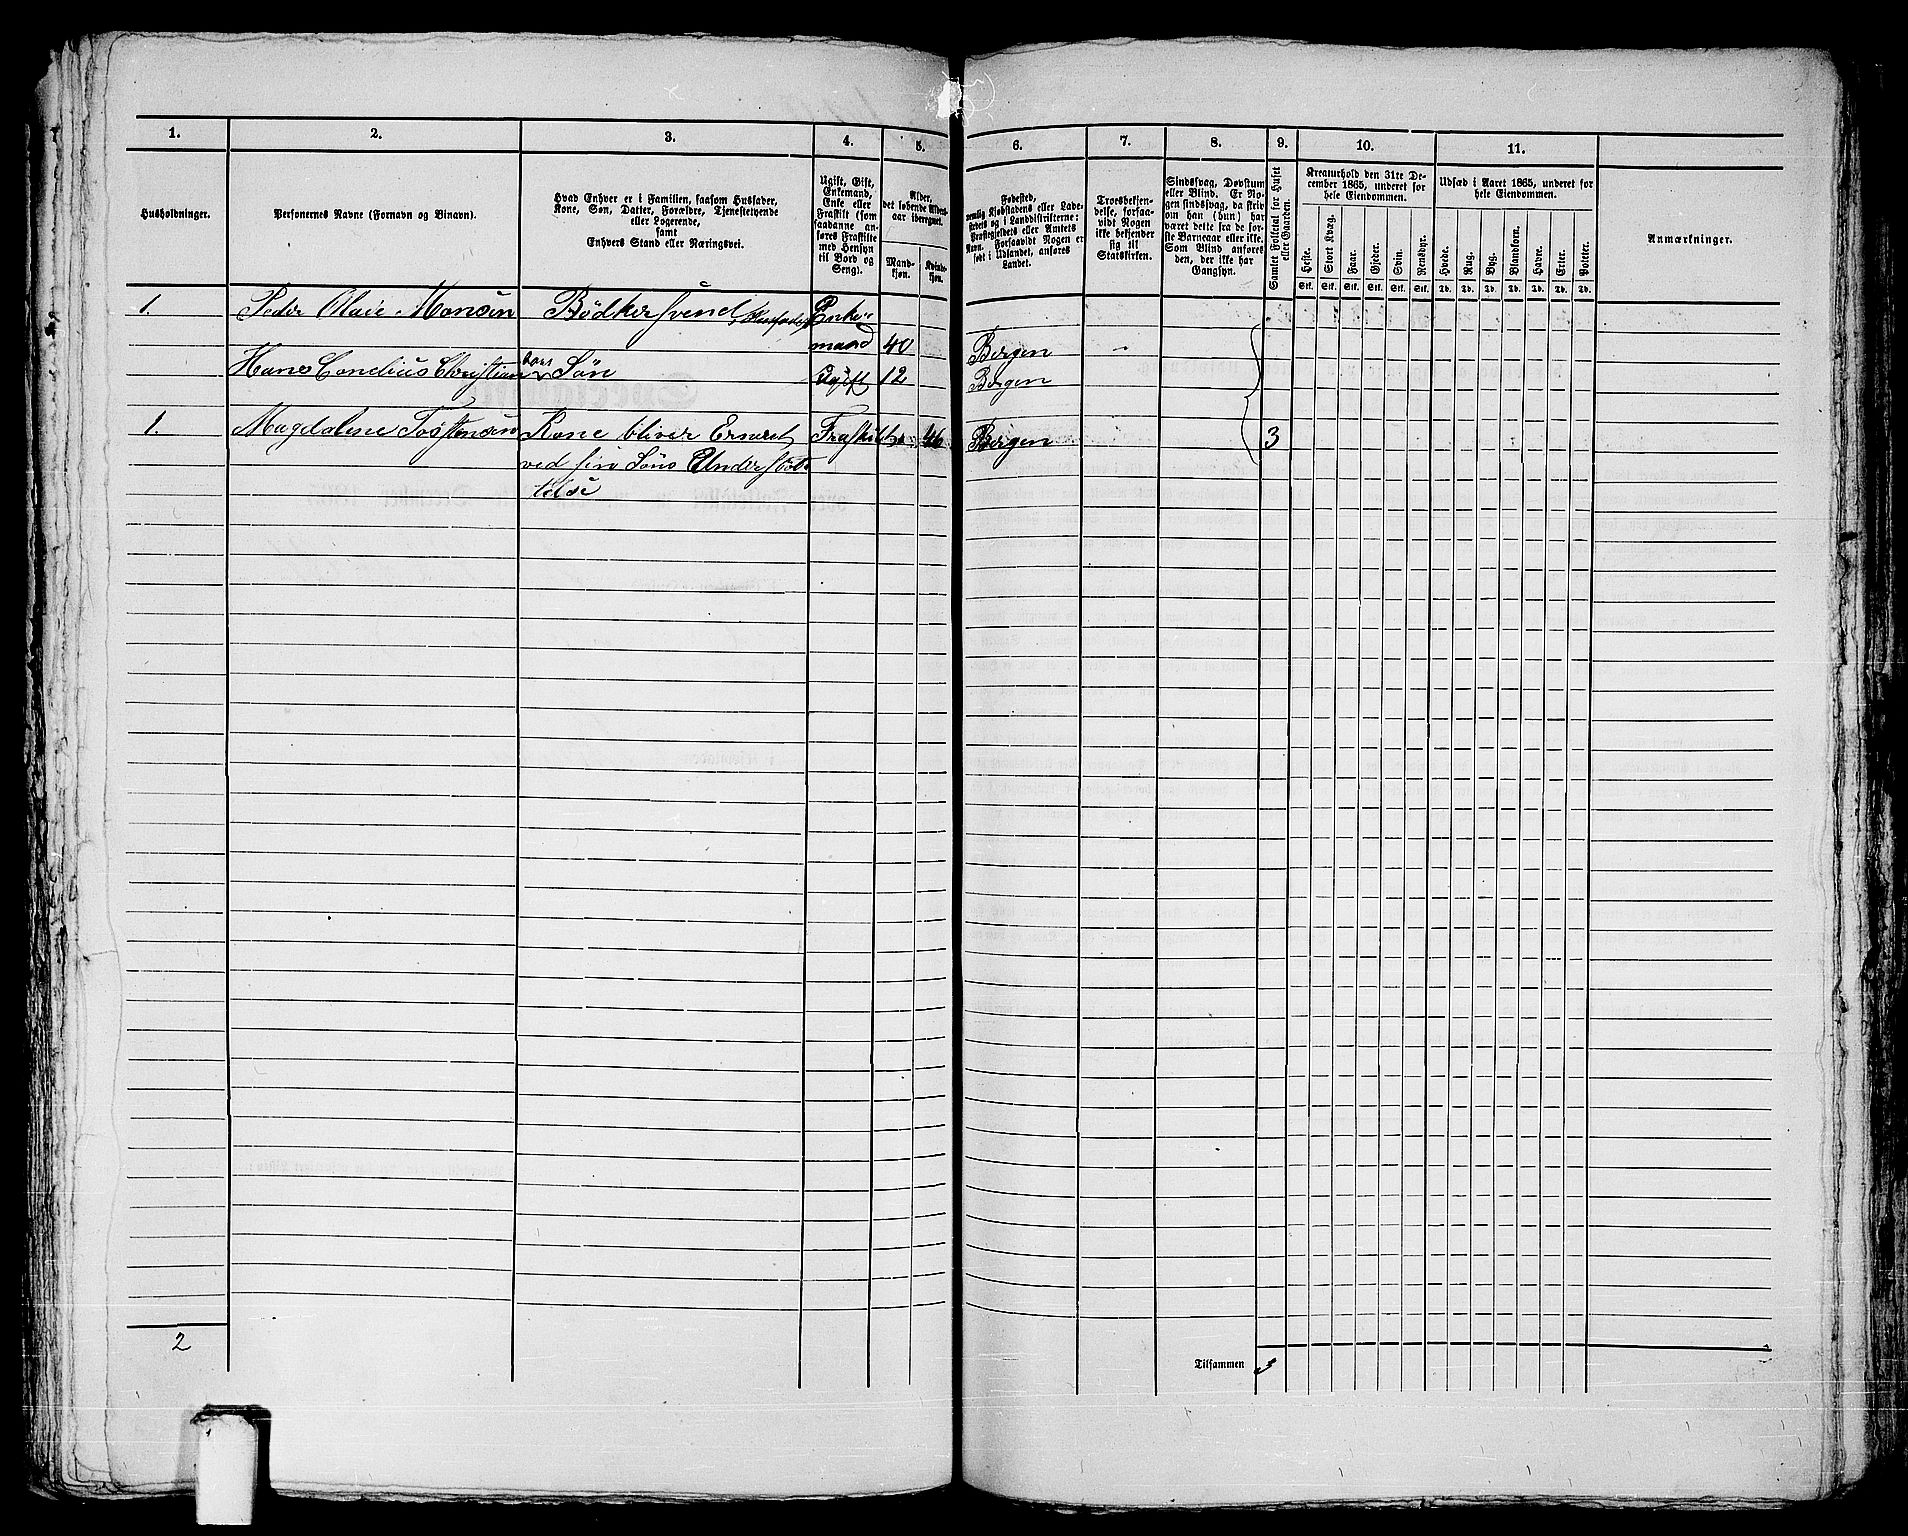 1. 2. 3. 4. 5. 6. 7. 8. 9. 10. 11.
Husholdninger.
Personernes Navne (Fornavn og Binavn).
Hvad Enhver er i Familien, saasom Husfader,
Kone, Søn, Datter, Forældre, Tjenestetyende
eller Logerende,
samt
Enhvers Stand eller Næringsvei.
Ugift, Gift,
Enkemand,
Enke eller
Fraskilt (som
saadanne an-
føres Fraskilte
med Hensyn
til Bord og
Seng).
Alder,
det løbende Alders-
aar iberegnet.
Mand-
kjøn.
Kvinde-
kjøn.
Fødested,
nemlig Kjøbstadens eller Lade-
stedets og i Landdistrikterne:
Præstegjeldets eller Amtets
Navn. Forsaavidt Nogen er
født i Udlandet, anføres
Landet.
Troesbekjen-
delse, forsaa-
vidt Nogen
ikke bekjender
sig til
Statskirken.
Sindssvag, Døvstum
eller Blind. Er No-
gen sindssvag, da skriv
om han (hun) har
været dette fra de før-
ste Barneaar eller ikke.
Som Blind anføres
den, der ikke har
Gangsyn.
Samlet Folketal for Huset
eller Gaarden.
Kreaturhold den 31te De-
cember 1865, underet for
hele Eiendommen.
Heste. Stort Kvæg. Faar. Gjeder. Svin. Rensdyr.
Stk. Stk. Stk. Stk. Stk. Stk.
Udsæd i Aaret 1865, underet for
hele Eiendommen.
Hvede. Rug. Byg. Blandkorn. Havre. Erter. Poteter.
Td. Td. Td. Td. Td. Td. Td.
Anmærkninger.
1. Peder Olaie Monsen Bødkersvend, Husfader Enke-
mand 40 Bergen
Hans Condius Christian hans Søn Ugift 12 Bergen
1. Magdalene Tostensen Kone bliver Ernæret Fraskilt 46 Bergen 3
ved sin Søns Understøt-
telse
2
Tilsammen 3